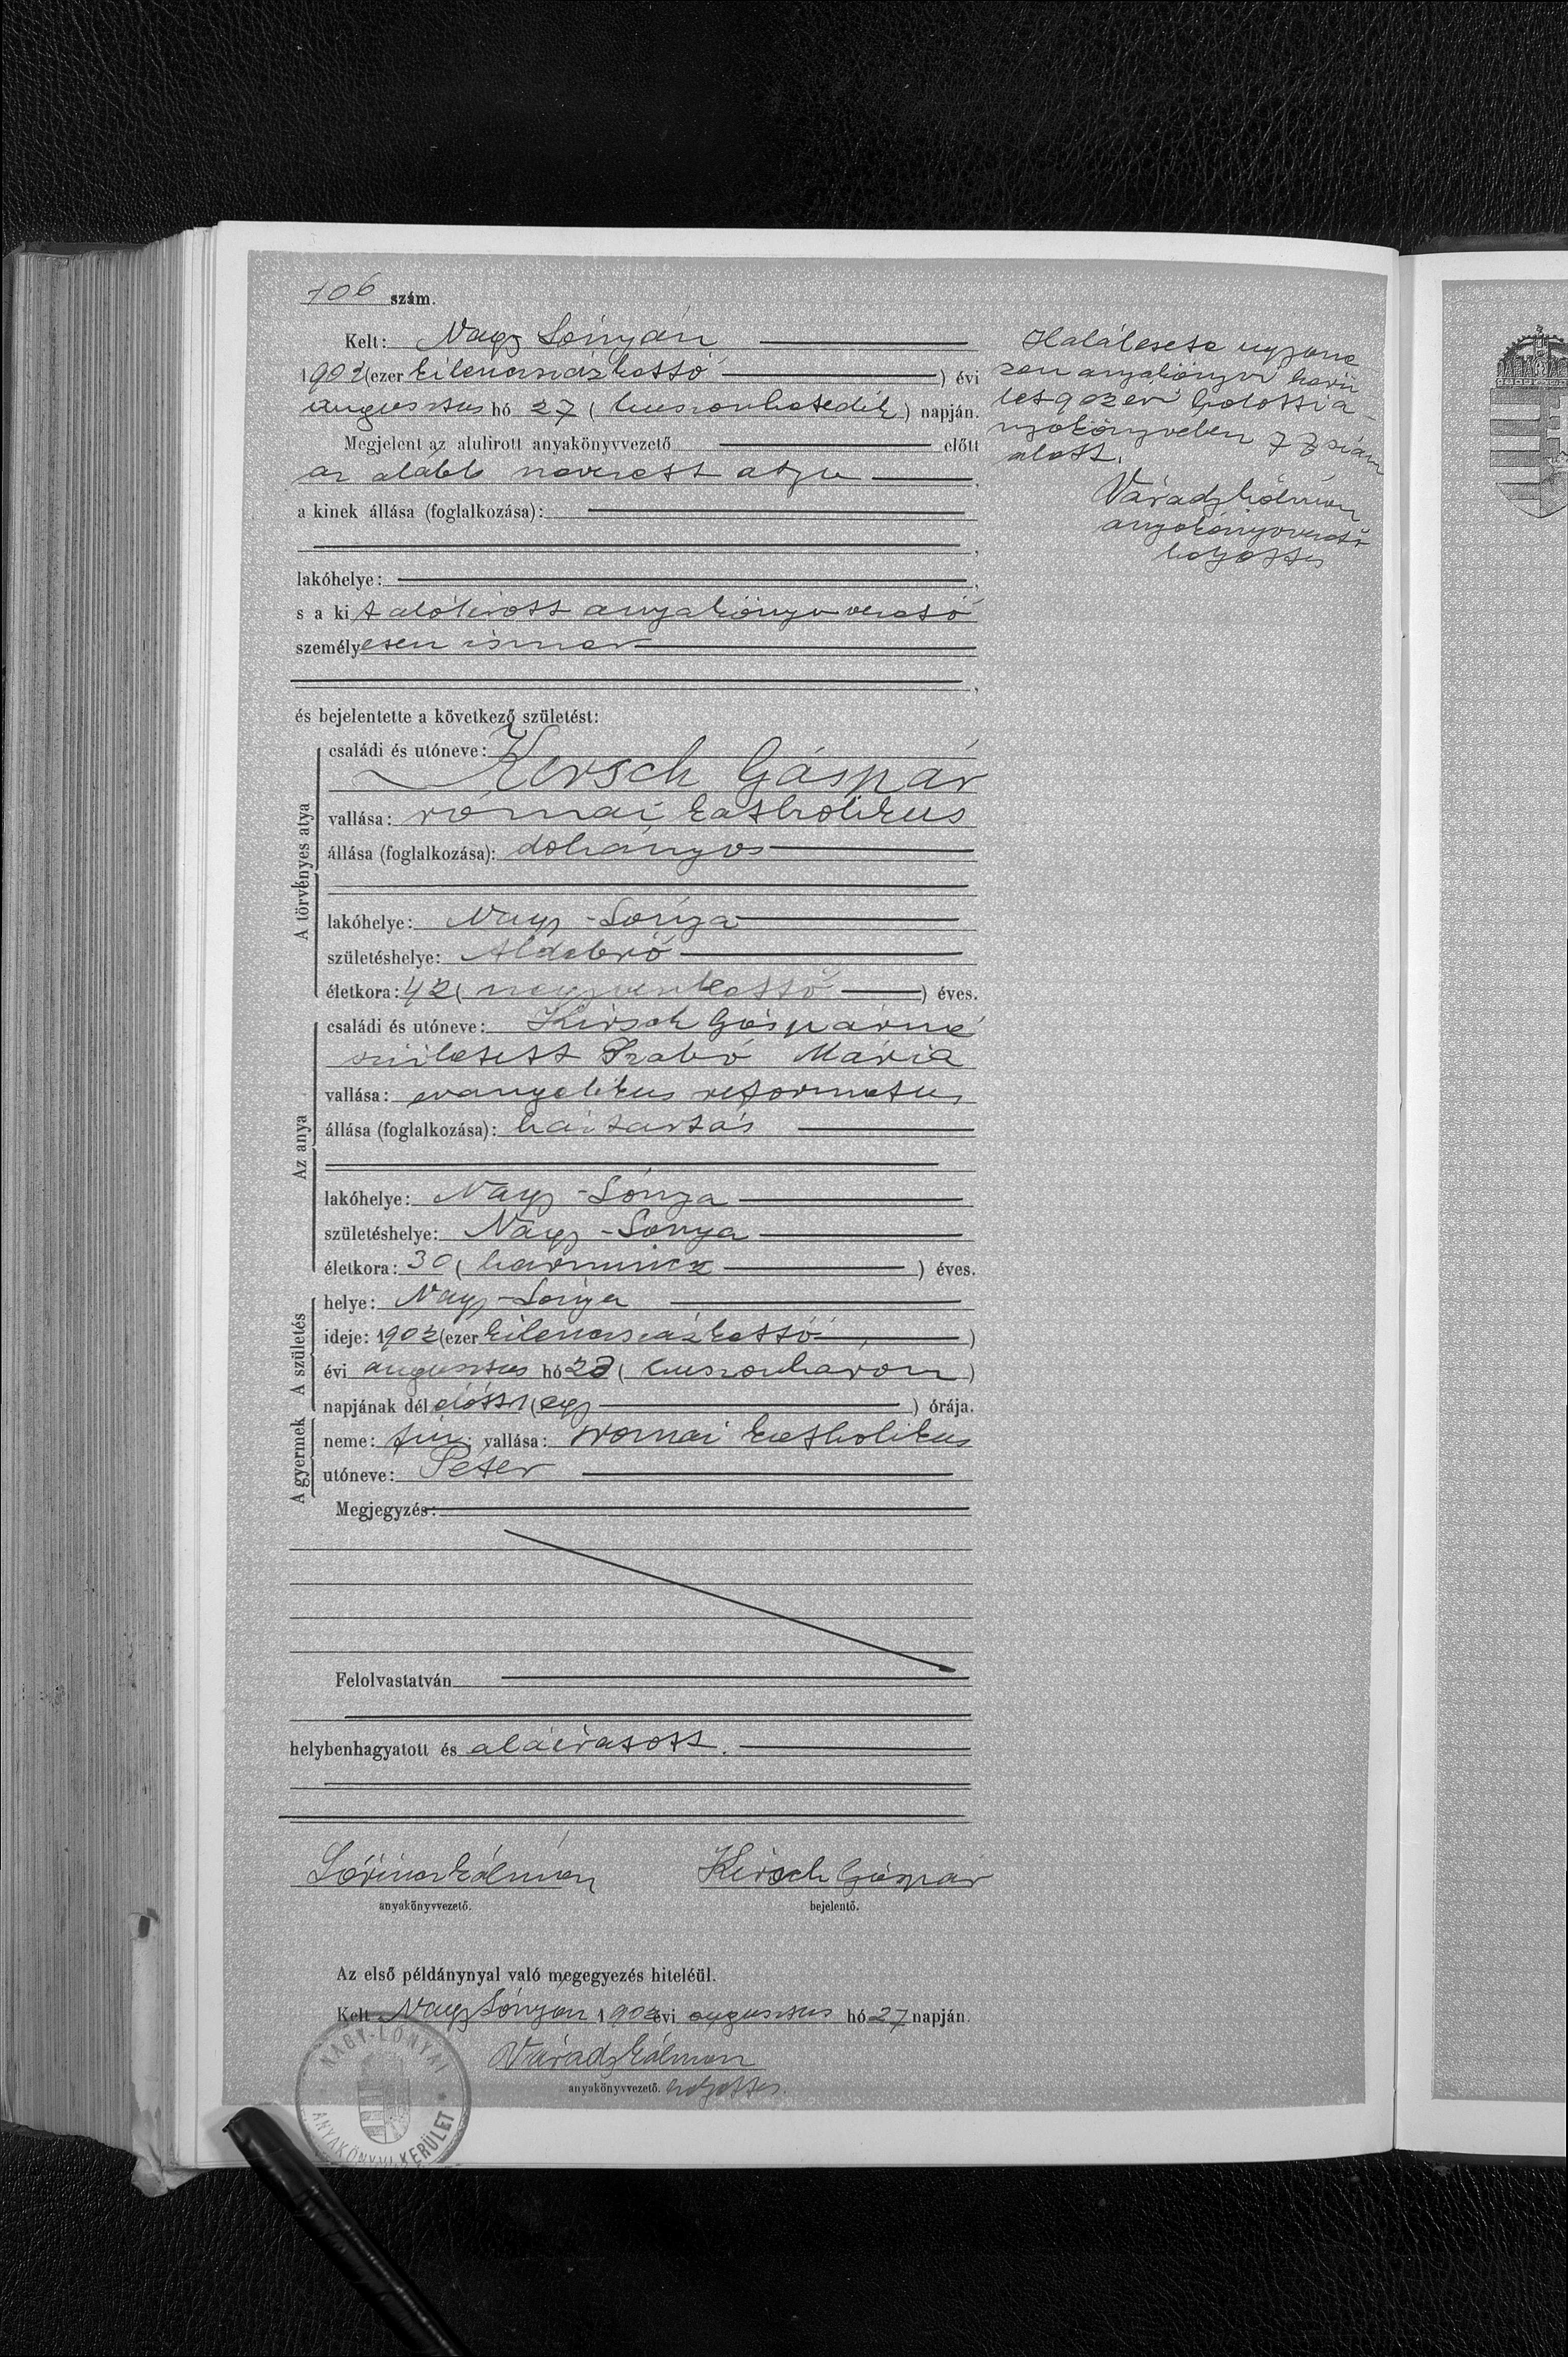 106 szám.
Kelt: Nagy Lónyán
1902 (ezer kilenczszázkettő) évi
augusztus hó 27 (huszonhetedik) napján.
Megjelent az alulirott anyakönyvvezető előtt
az alább nevezett atya,
a kinek állása (foglalkozása):
lakóhelye:
s a kit alólirott anyakönyvvezető
személyesen ismer
és bejelentette a következő születést:
A törvényes atya
családi és utóneve:
Kirsch Gáspár
vallása: római katholikus
állása (foglalkozása): dohányos
lakóhelye: Nagy-Lónya
születéshelye: Aldebrő
életkora: 42 (negyvenkettő) éves.
Az anya
családi és utóneve: Kirsch Gáspárné
született Szabó Mária
vallása: evangelikus reformatus
állása (foglalkozása): háztartás
lakóhelye: Nagy-Lónya
születéshelye: Nagy-Lónya
életkora: 30 (harmincz) éves.
A születés
helye: Nagy-Lónya
ideje: 1902 (ezer kilenczszázkettő)
évi augusztus hó 23 (huszonhárom)
napjának dél előtt 1 (egy) órája.
A gyermek
neme: fiu; vallása: romai katholikus
utóneve: Péter
Megjegyzés:
Felolvastatván
helybenhagyatott és aláiratott.
Lőrincz Kálmán
anyakönyvvezető.
Kirsch Gáspár
bejelentő.
Az első példánynyal való megegyezés hiteléül.
Kelt Nagy Lónyán 1902 évi augusztus hó 27 napján.
Várady Kálmán
anyakönyvvezető. helyettes.
NAGY-LÓNYAI
ANYAKÖNYVI KERÜLET
Halálesete ugyane
zen anyakönyvi kerü
let 902 évi halotti a-
nyakönyvében 77 szám
alatt.
Várady Kálmán
anyakönyvvezető
helyettes